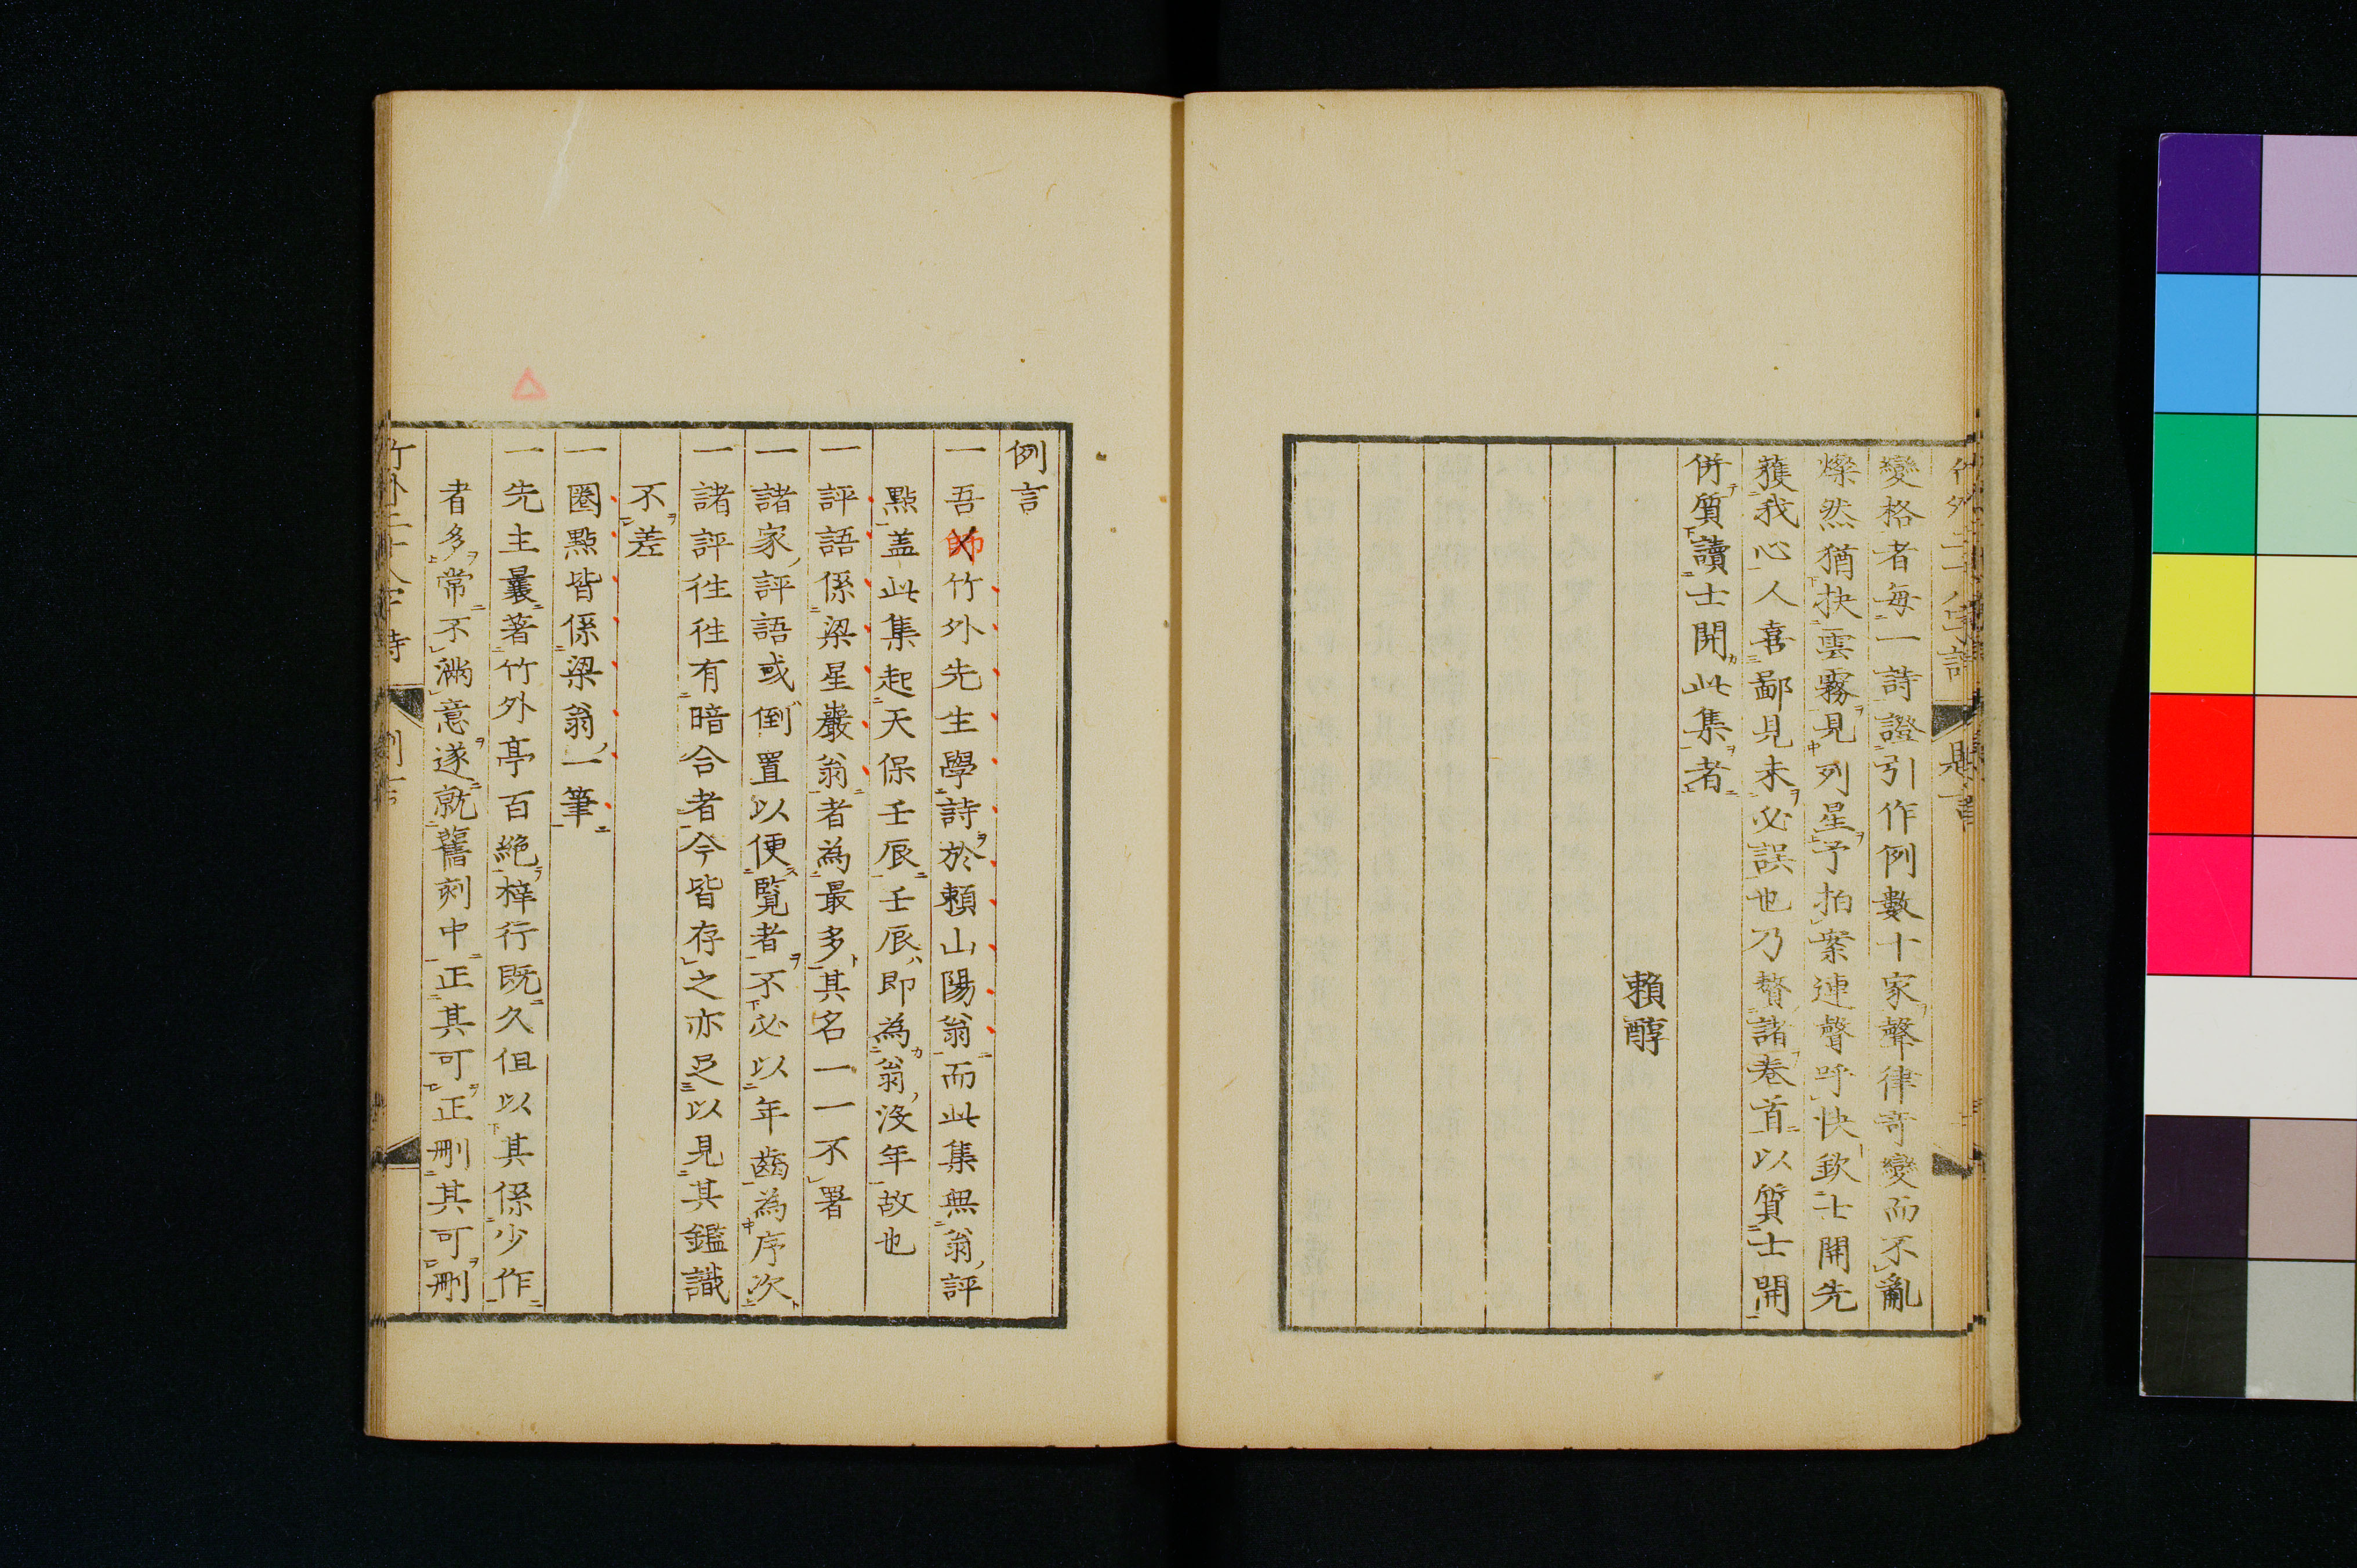 變格者每一詩證引作例數十家聲律奇變而不亂
燦然猶抉雲霧見列星予拍案連聲呼快欽士開先
獲我心人喜鄙見未必誤也乃贅諸卷首以質士開
併質讀士開此集者
賴醇
例言
一吾師竹外先生學詩於賴山陽翁而此集無翁評
點盖此集起天保壬辰壬辰即為翁沒年故也
一評語係梁星巖翁者為最多其名一一不署
一諸家評語或倒置以便覽者不必以年齒為序次
一諸評往往有暗合者今皆存之亦足以見其鑑識
不差
一圈點皆係梁翁一筆
一先生曩著竹外亭百絶梓行既久但以其係少作
者多常不滿意遂就舊刻中正其可正刪其可刪